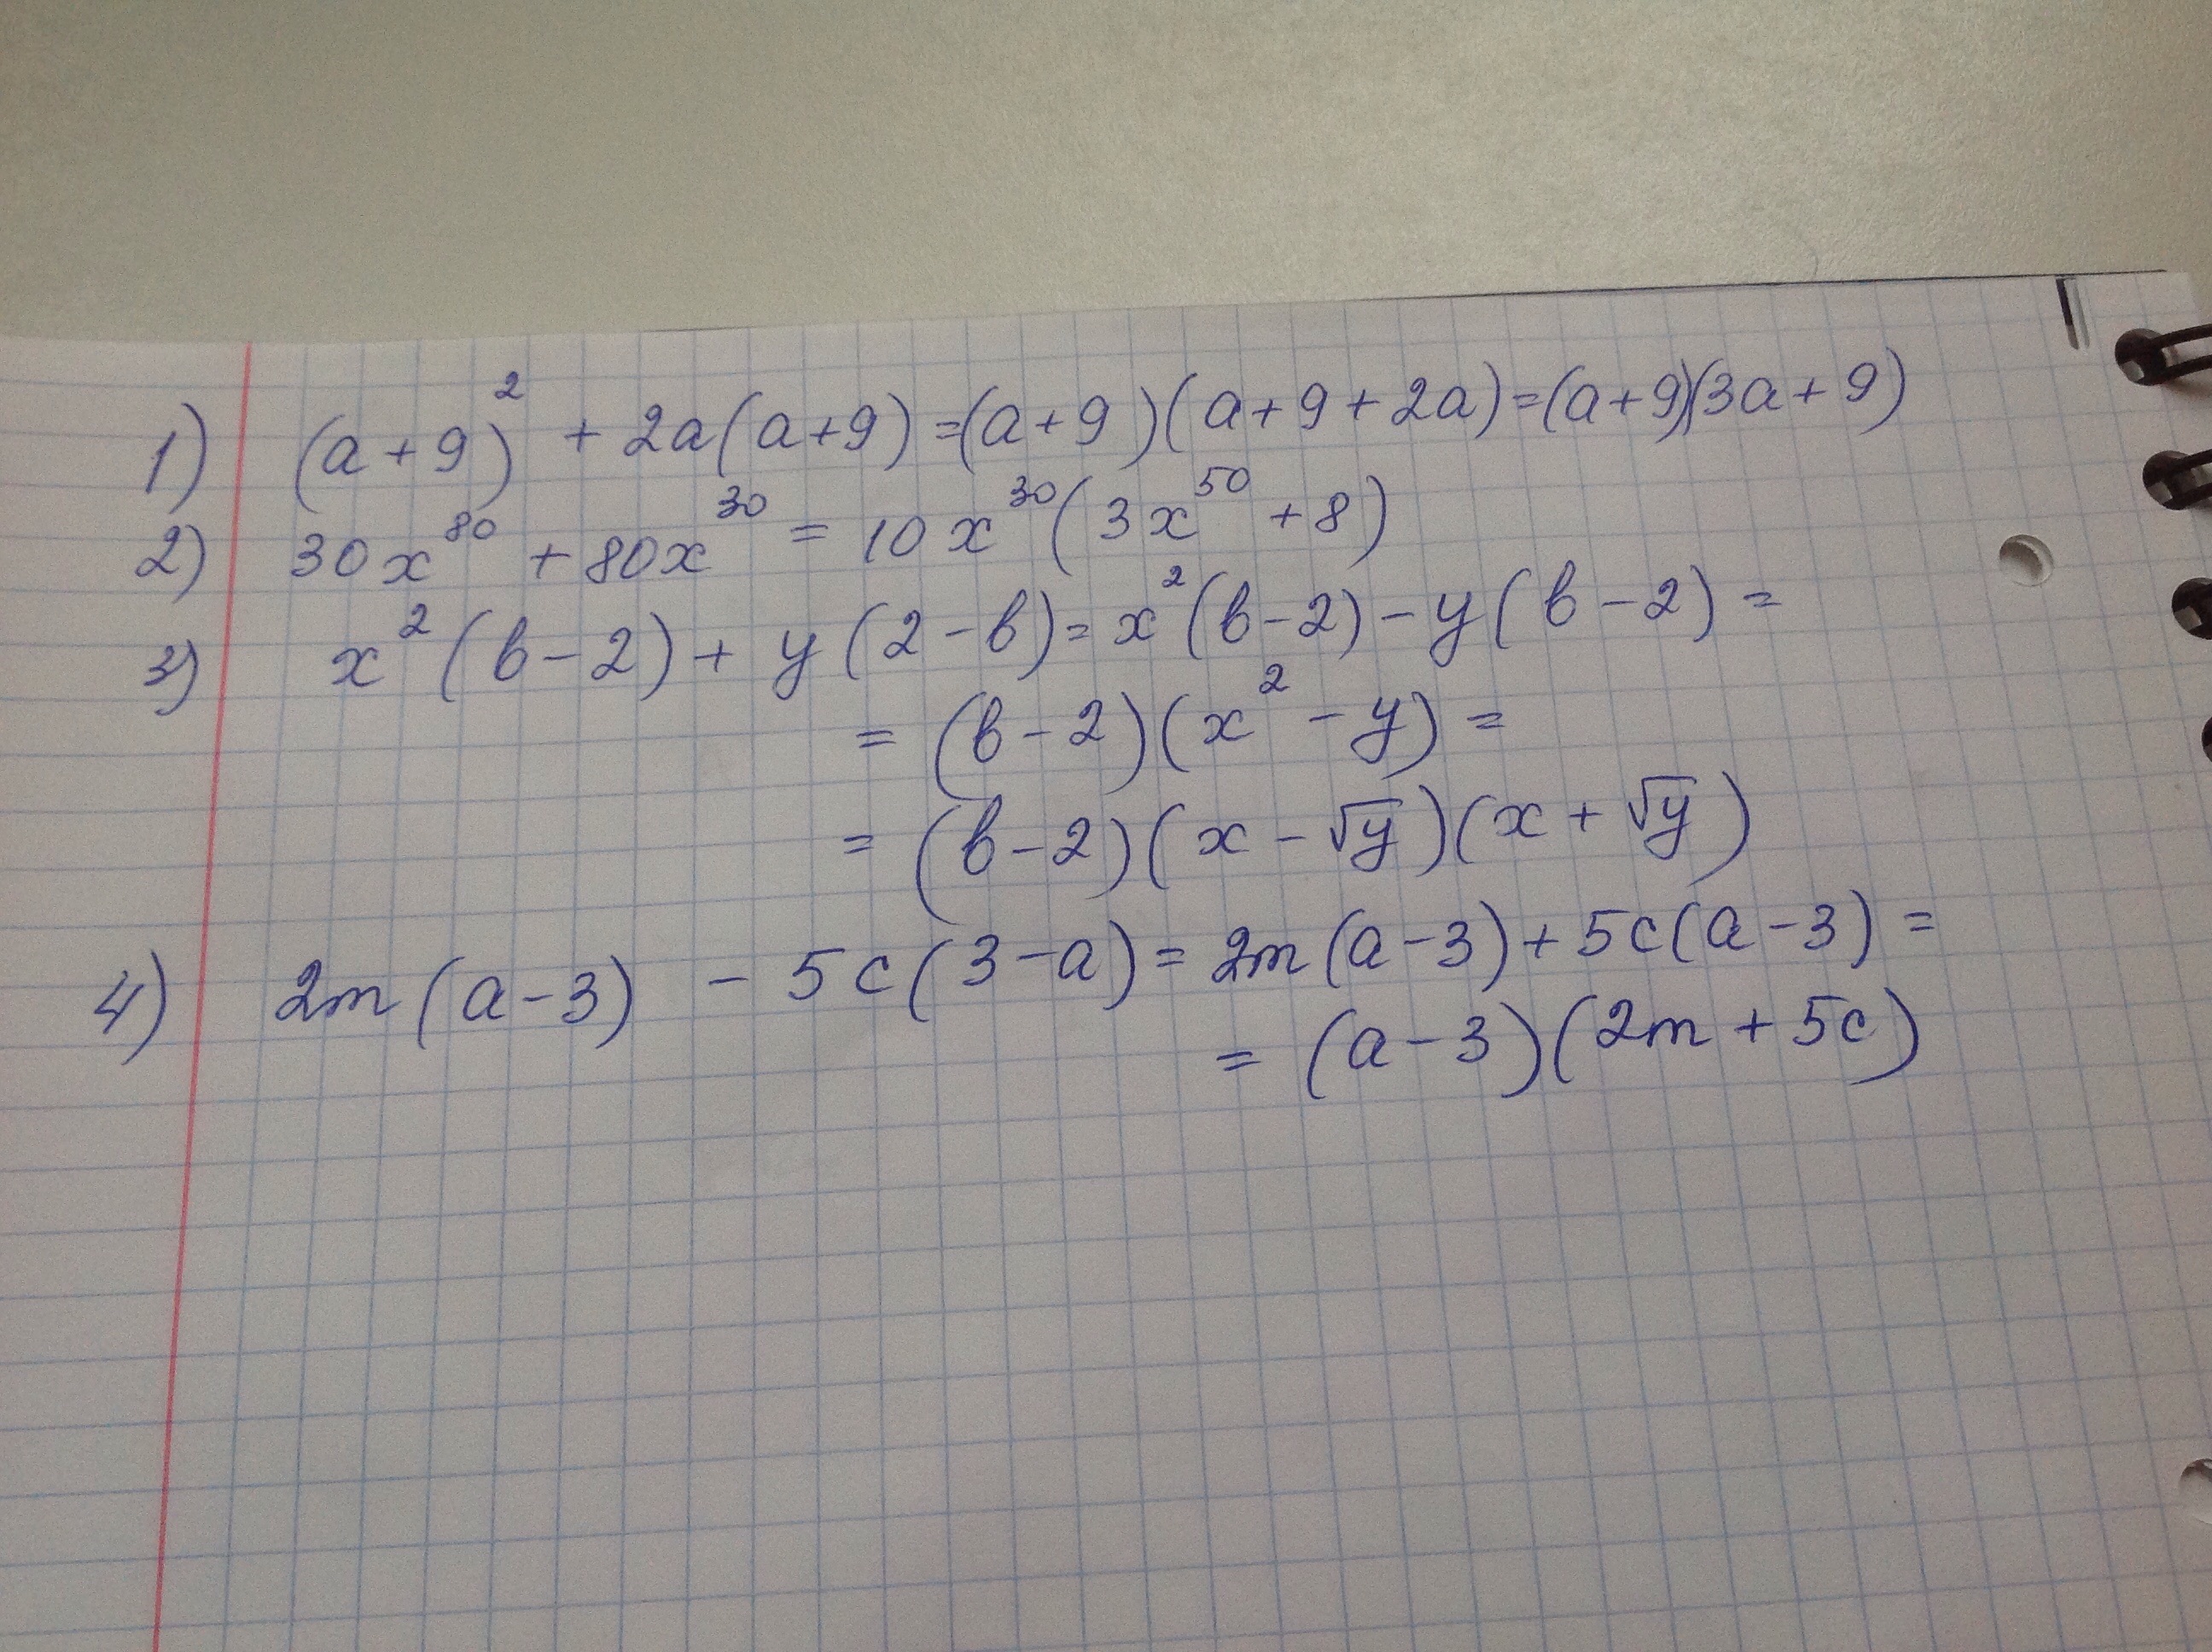 1) (a+9)² + 2a(a+9) = (a+9)(a+9+2a) = (a+9)(3a+9)
2) 30x⁸⁰ + 80x³⁰ = 10x³⁰(3x⁵⁰ + 8)
3) x²(b-2) + y(2-b) = x²(b-2) - y(b-2) =
= (b-2)(x² - y) =
= (b-2)(x - √y)(x + √y)
4) 2m(a-3) - 5c(3-a) = 2m(a-3) + 5c(a-3) =
= (a-3)(2m + 5c)